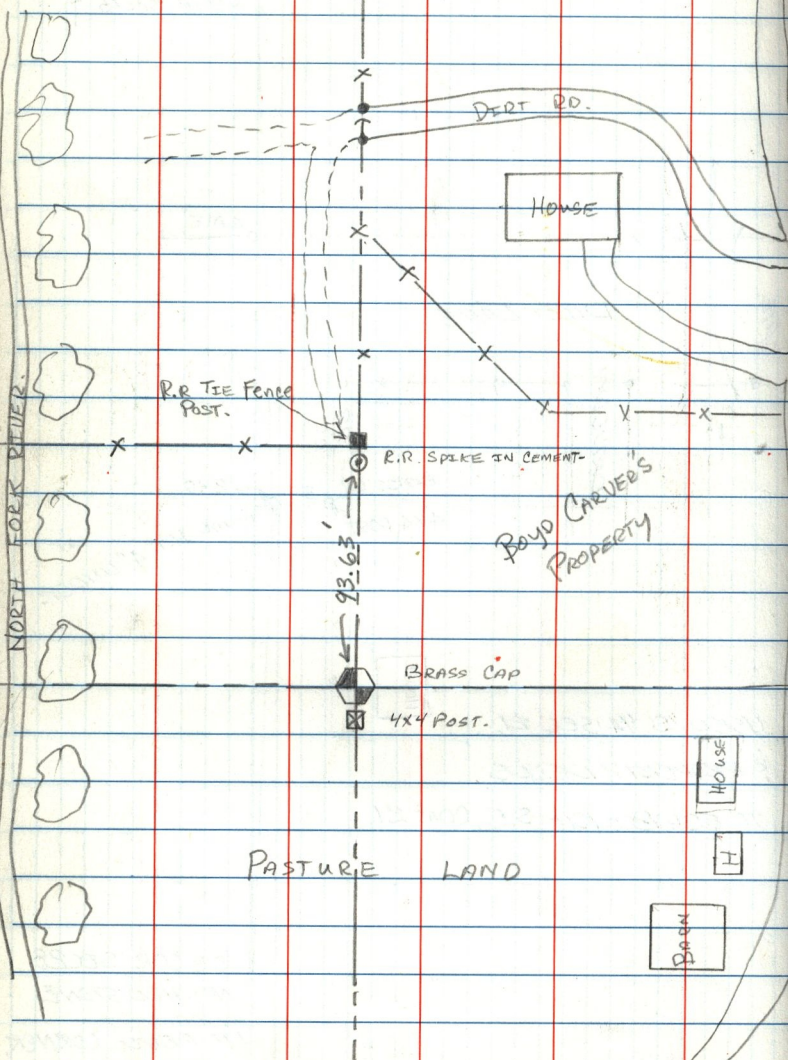 DIRT RD.
HOUSE
R.R TIE Fence
POST.
R.R. SPIKE IN CEMENT-
NORTH FORK RIVER.
BOYD CARVER'S
PROPERTY
93.63'
BRASS CAP
4x4 POST.
HOUSE
H
PASTURE LAND
BARN